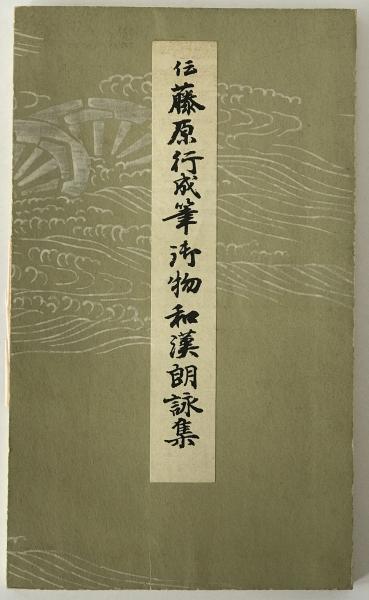 伝藤原行成筆御物和漢朗詠集